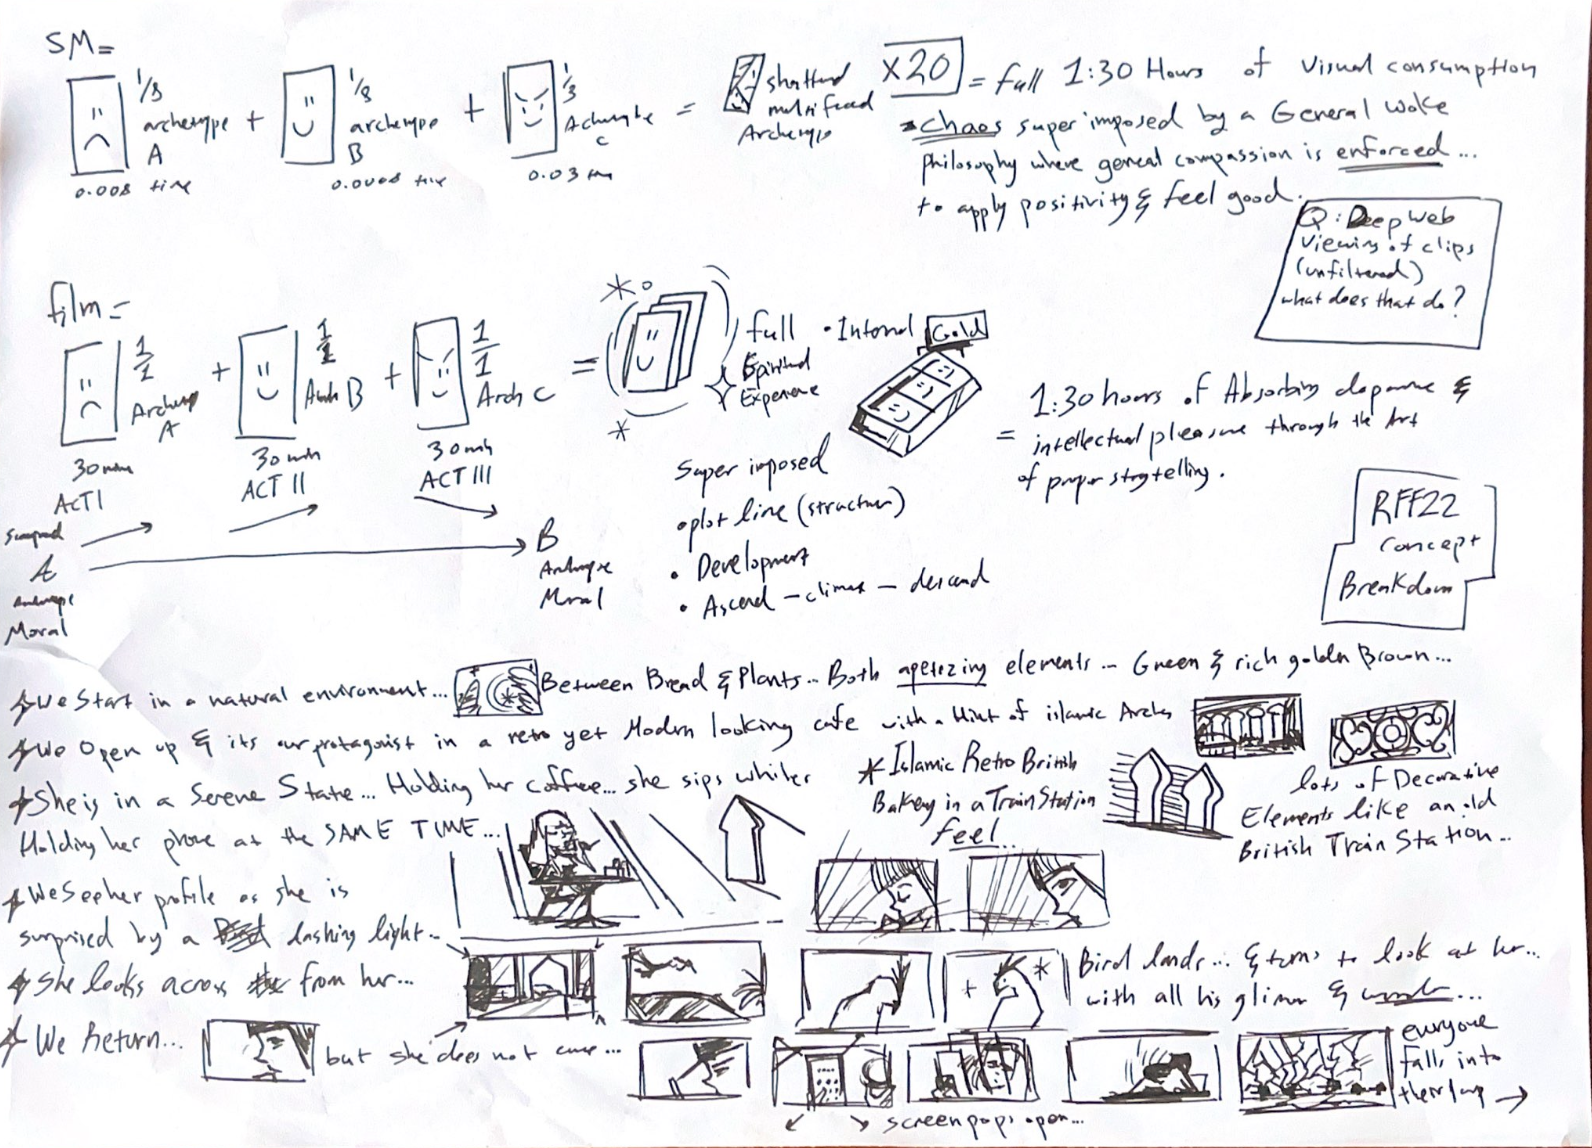 SM=
1/3
archetype
A
0.008 time
+
1/3
archetype
B
0.0008 time
+
1/3
Archetype
C
0.03 time
=
shattered
multifaced
Archetype
x20
= full 1:30 Hours of Visual consumption
Chaos superimposed by a General Woke
Philosophy where general compassion is enforced...
to apply positivity & feel good.
Q: Deep web
Viewing of clips
(unfiltered)
what does that do?
film =
1/1
Archetype
A
30 min
ACT I
+
1/1
Arch B
30 min
ACT II
+
1/1
Arch C
30 min
ACT III
=
full
Spiritual
Experience
• Internal Gold
= 1:30 hours of Absorbing dopamine &
intellectual pleasure through the Art
of proper storytelling.
Super imposed
• plot line (structure)
• Development
• Ascend - climax - descend
A
Moral
B
Archetype
Moral
RFF22
Concept
Breakdown
We start in a natural environment... Between Bread & Plants... Both apetezing elements... Green & rich golden Brown...
We open up & its our protagonist in a retro yet Modern looking cafe with a Hint of islamic Arches
She is in a Serene State... Holding her coffee... she sips while
Holding her phone at the SAME TIME...
* Islamic Retro British
Bakery in a Train Station
feel...
lots of Decorative
Elements like an old
British Train Station...
We see her profile as she is
surprised by a dashing light...
She looks across from her...
Bird lands... & turns to look at her...
with all his glimer &
We Return... but she does not care...
screen pops open...
everyone
falls into
their